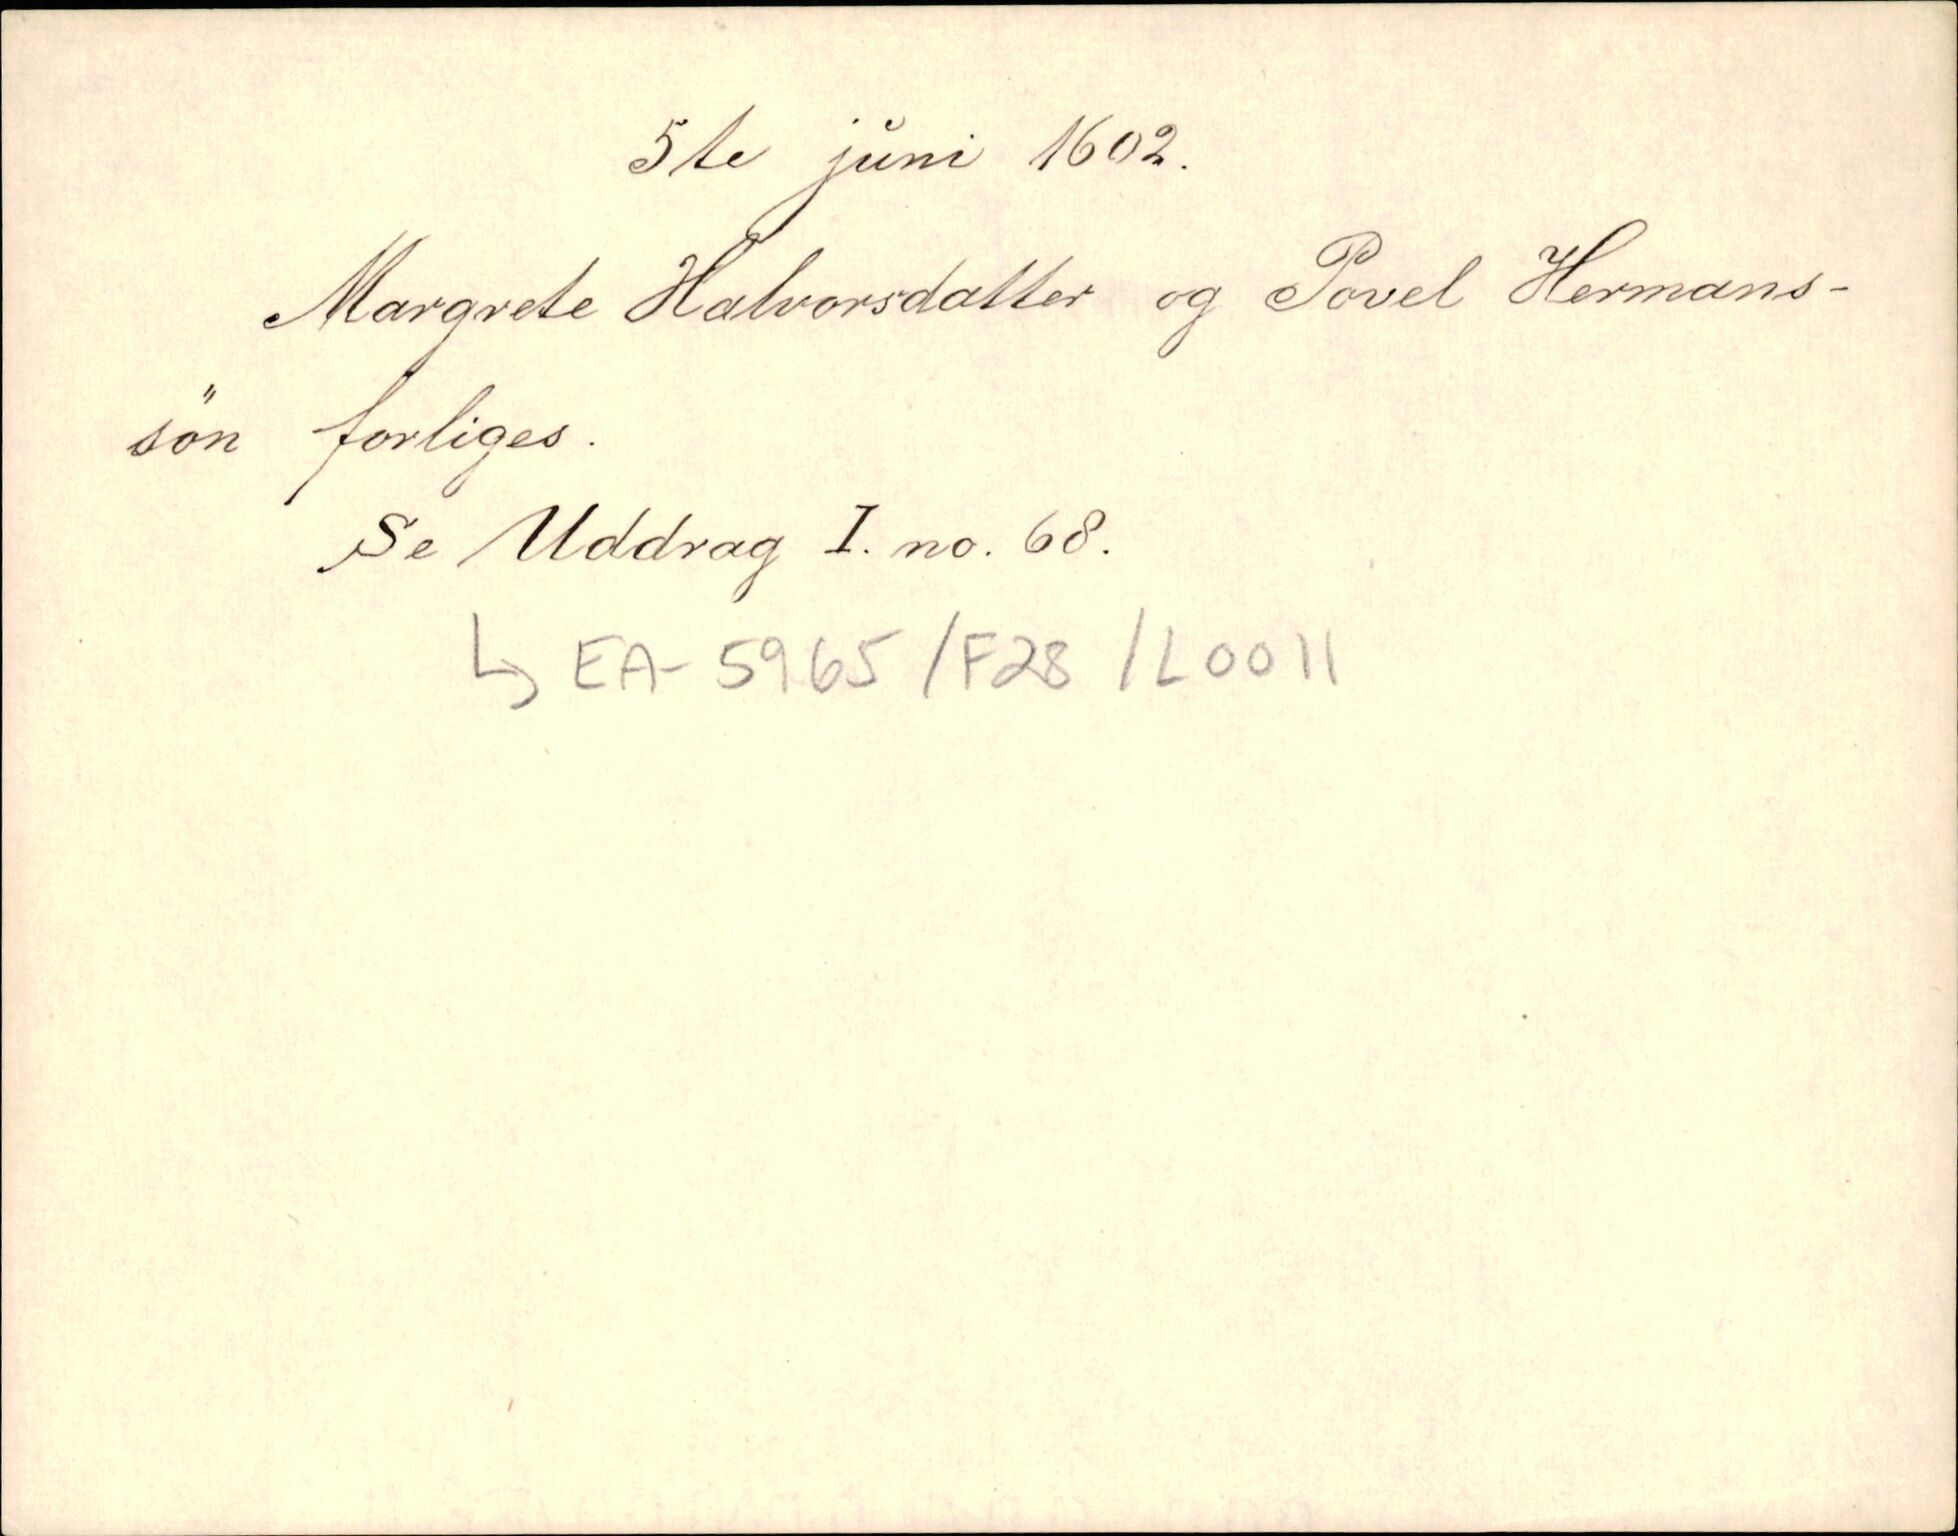 5te juni 1602.
Margrete Halvorsdatter og Povel Hermans-
sön forliges.
Se Uddrag I. no. 68.
↳ EA-5965/F28/L0011